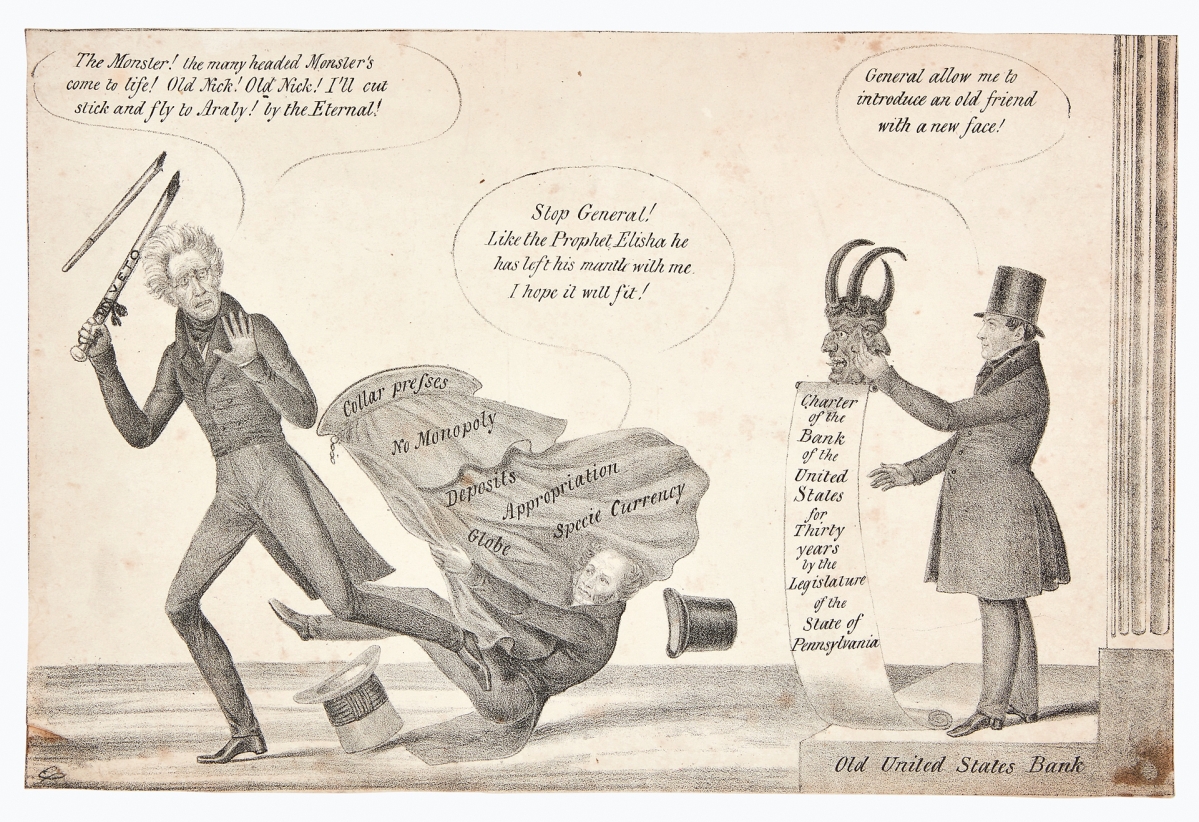 The Monster! the many headed Monster's
come to life! Old Nick! Old Nick! I'll cut
stick and fly to Araby! by the Eternal!
General allow me to
introduce an old friend
with a new face!
Stop General!
Like the Prophet Elisha he
has left his mantle with me.
I hope it will fit!
VETO
Collar presses
No Monopoly
Deposits
Appropriation
Specie Currency
Globe
Charter
of the
Bank
of the
United
States
for
Thirty
years
by the
Legislature
of the
State of
Pennsylvania
Old United States Bank